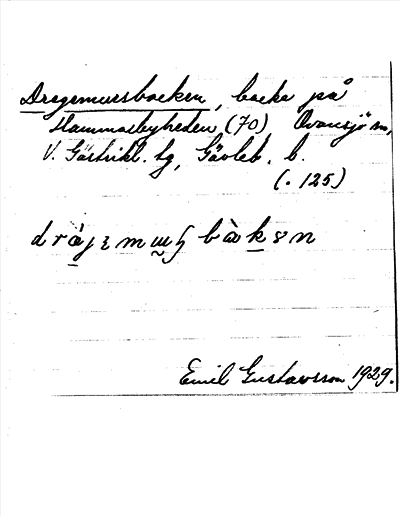 Dragemursbacken, backe på
Hammarbyheden, (70) Ovansjö sn,
V. Gästrikl. tg, Gävleb. l.
(. 125)
Emil Gustavsson 1929.